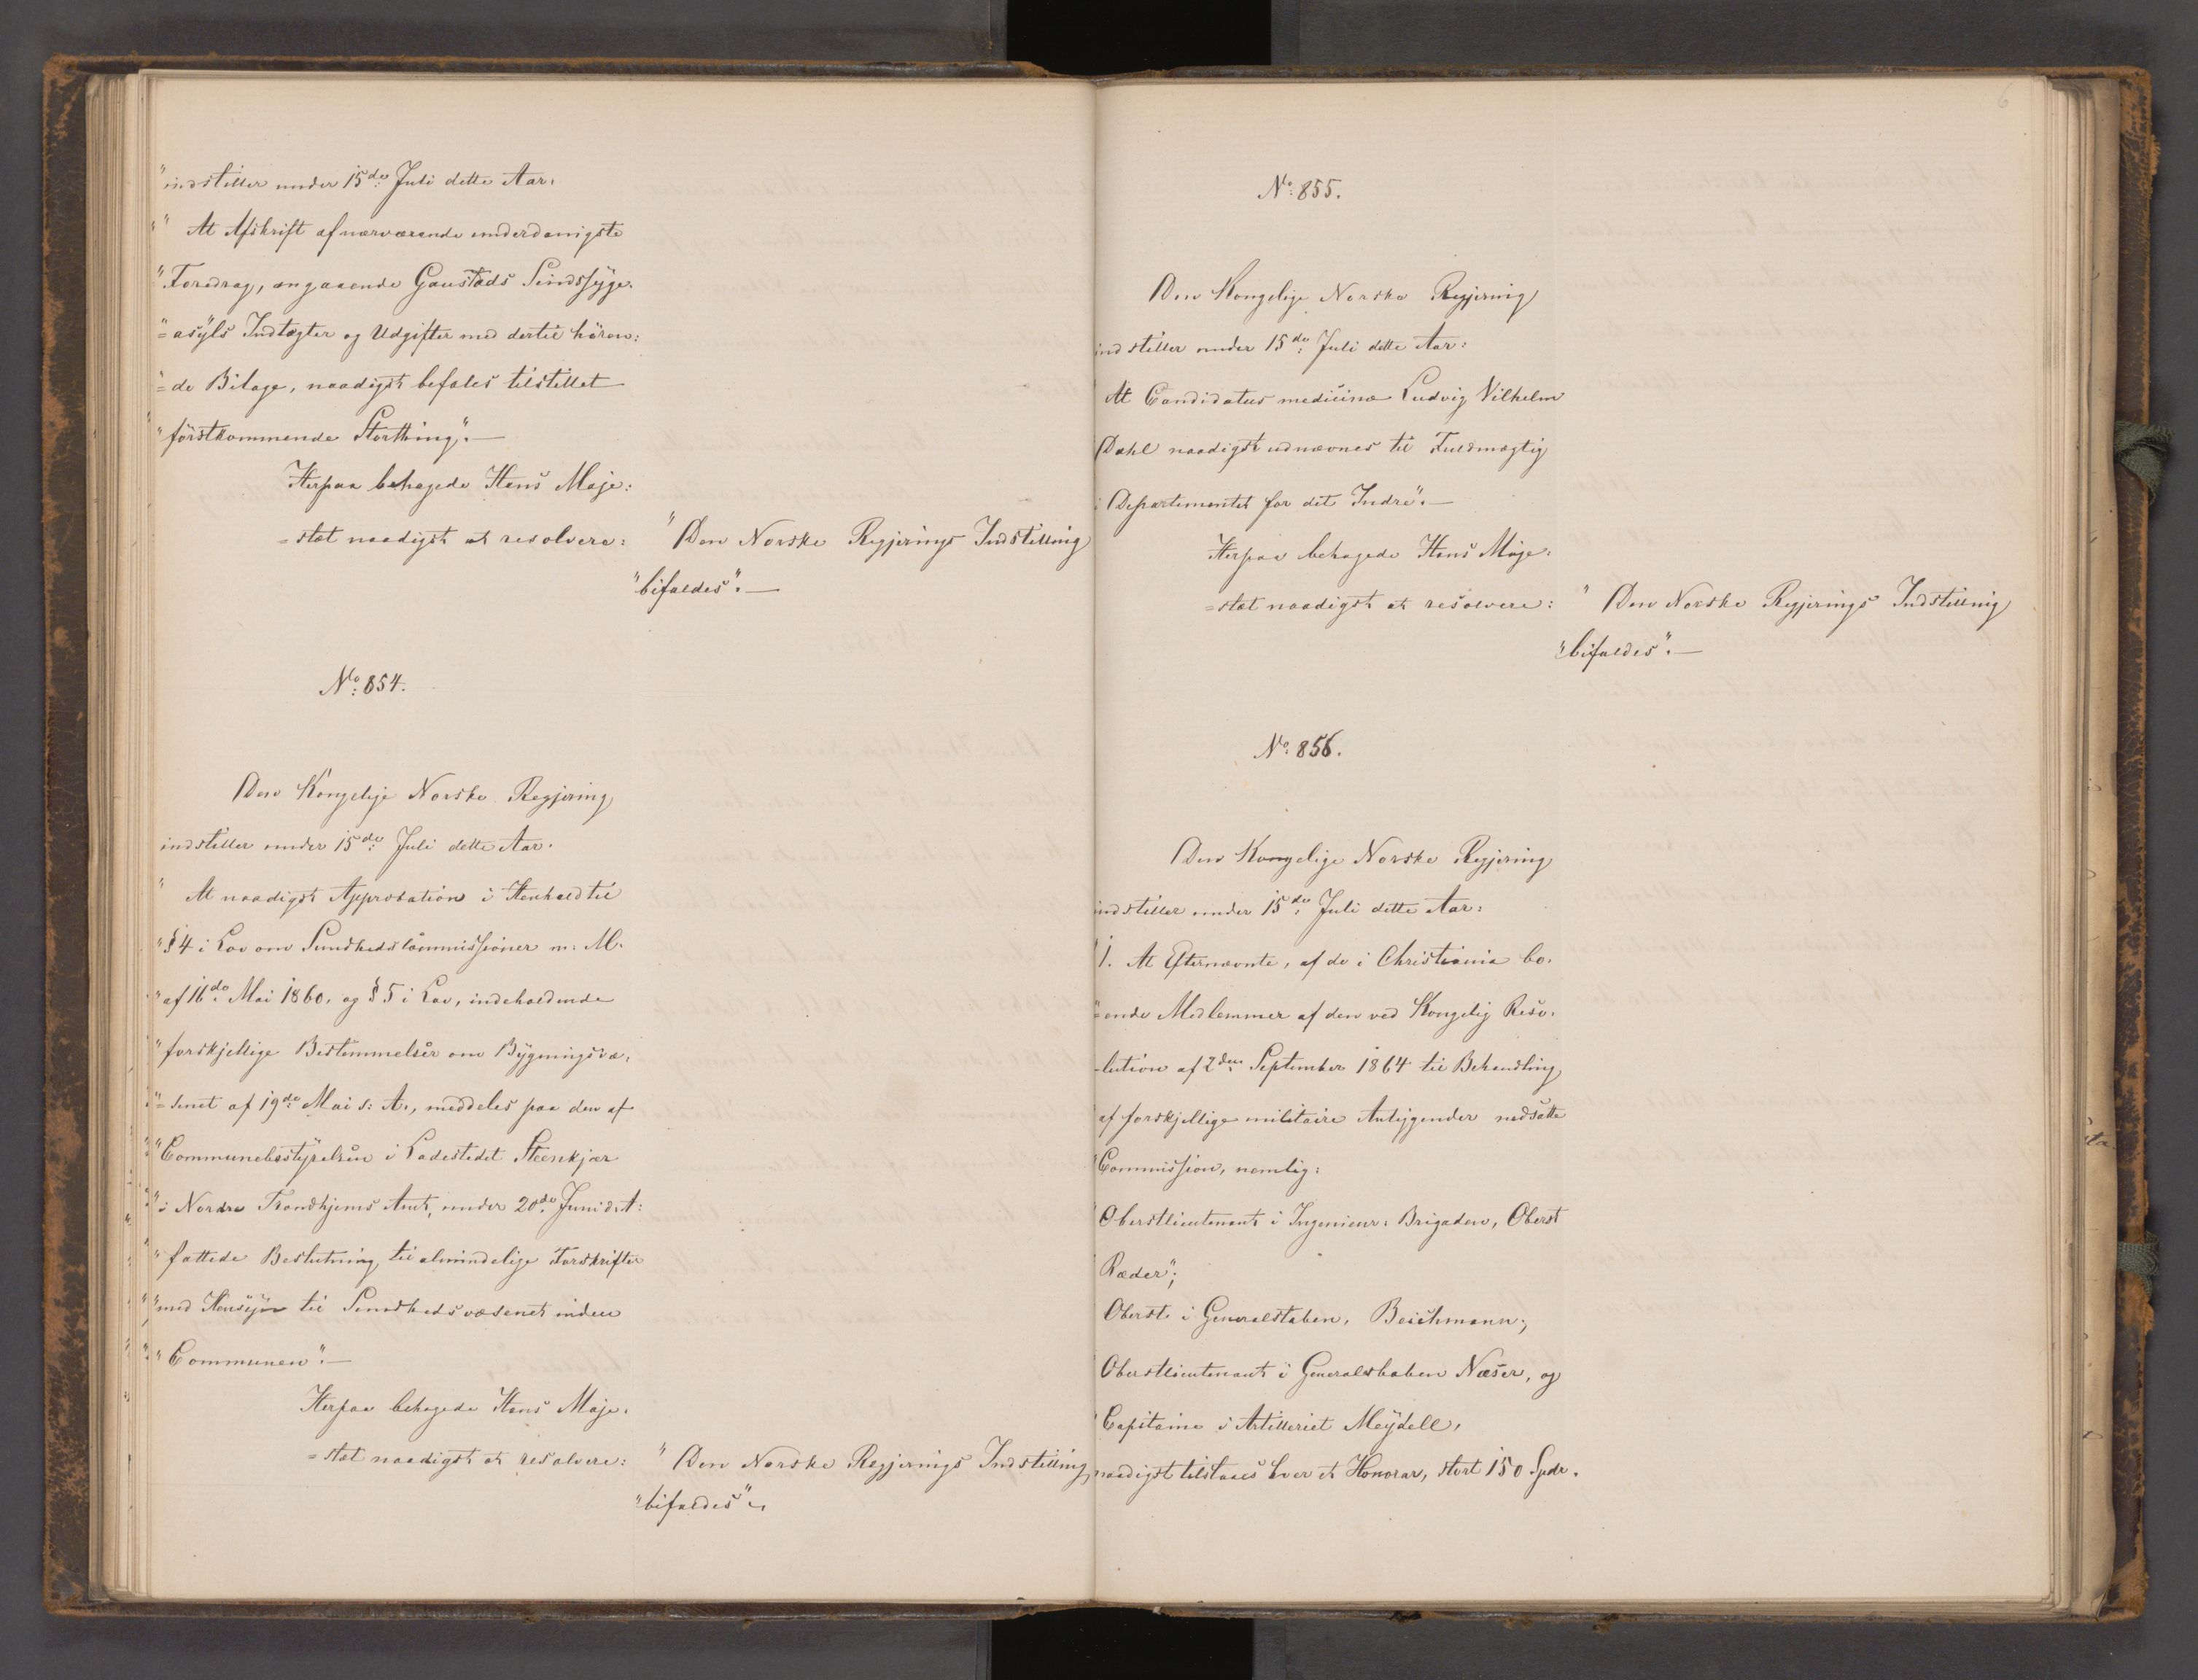 "indstiller under 15de Juli dette Aar:
" At Afskrift af nærværende underdanigste
"Foredrag, angaaende Gaustads Sindssyge-
"=asyls Indtægter og Udgifter med dertil hören:
"=de Bilage, naadigst befales tilstillet
"förstkommende Storthing".—
Herpaa behagede Hans Maje:
=stæt naadigst at resolvere:
"Den Norske Regjerings Indstilling
"bifaldes".—
No: 854.
Den Kongelige Norske Regjering
indstiller under 15de: Juli dette Aar:
" At naadigst Approbation i Henhold til
"§ 4 i Lov om Sundhedscommissioner m: M.
"af 16de: Mai 1860, og § 5 i Lov, indeholdende
"forskjellige Bestemmelser om Bygningsvæ-
"=senet af 19de: Mai s: A., meddeles paa den af
"Communebestyrelsen i Ladestedet Steenkjær
"i Nordre Trondhjems Amt, under 20de: Juni d. A:
"fattede Beslutning til almindelige Forskrifter
"med Hensyn til Sundhedsvæsenet inden
"Communen".—
Herpaa behagede Hans Maje-
=stæt naadigst at resolvere:
"Den Norske Regjerings Indstilling
"bifaldes".
6
No: 855.
Den Kongelige Norske Regjering
indstiller under 15de: Juli dette Aar:
"At Candidatus medicinæ Ludvig Vilhelm
Dahl naadigst udnævnes til Fuldmægtig
i Departementet for det Indre".—
Herpaa behagede Hans Maje:
=stæt naadigst at resolvere:
"Den Norske Regjerings Indstilling
"bifaldes".—
No: 856.
Den Kongelige Norske Regjering
indstiller under 15de: Juli dette Aar:
"1. At Efternævnte, af de i Christiania bo-
"=ende Medlemmer af den ved Kongelig Reso-
-lution af 2den September 1864 til Behandling
af forskjellige militaire Anliggender nedsatte
"Commission, nemlig:
"Oberstlieutenant i Ingenieur-Brigaden, Oberst
Ræder";
Oberst i Generalstaben, Beichmann;
Oberstlieutenant i Generalstaben Næser, og
"Capitaine i Artilleriet Meydell,
naadigst tilstaaes hver et Honorar, stort 150 Spdr.